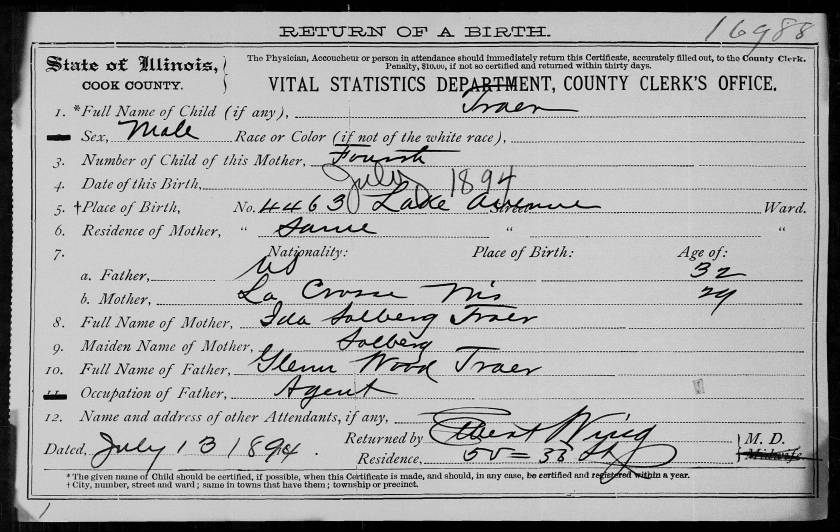 RETURN OF A BIRTH.
16988
State of Illinois,
COOK COUNTY.
The Physician, Accoucheur or person in attendance should immediately return this Certificate, accurately filled out, to the County Clerk.
Penalty, $10.00, if not so certified and returned within thirty days.
VITAL STATISTICS DEPARTMENT, COUNTY CLERK'S OFFICE.
1. *Full Name of Child (if any), Traer
Sex, Male Race or Color (if not of the white race),
3. Number of Child of this Mother, Fourth
4. Date of this Birth, July 1894
5. †Place of Birth, No. 4463 Lake Avenue Street Ward.
6. Residence of Mother, " Same " "
7. Nationality: Place of Birth: Age of:
a. Father, US 32
b. Mother, La Crosse Wis 29
8. Full Name of Mother, Ida Solberg Traer
9. Maiden Name of Mother, Solberg
10. Full Name of Father, Glenn Wood Traer
11. Occupation of Father, Agent
12. Name and address of other Attendants, if any,
Dated, July 13 1894. Returned by Elbert Wing M. D.
Residence, 55=33 St Midwife
* The given name of Child should be certified, if possible, when this Certificate is made, and should, in any case, be certified and registered within a year.
† City, number, street and ward; same in towns that have them; township or precinct.